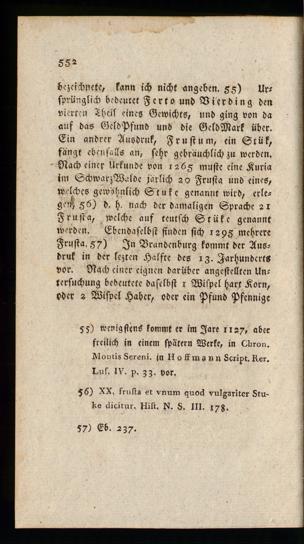 552
bezeichnete, kann ich nicht angeben. 55) Ur-
sprünglich bedeutet Ferto und Vierding den
vierten Theil eines Gewichts, und ging von da
auf das GeldPfund und die GeldMark über.
Ein andrer Ausdruk, Frustum, ein Stük,
fängt ebenfalls an, sehr gebräuchlich zu werden.
Nach einer Urkunde von 1265 muste eine Kuria
im SchwarzWalde järlich 20 Frusta und eines,
welches gewöhnlich Stuke genannt wird, erle-
gen, 56) d. h. nach der damaligen Sprache 21
Frusta, welche auf teutsch Stüke genannt
werden. Ebendaselbst finden sich 1295 mehrere
Frusta. 57) In Brandenburg kommt der Aus-
druk in der lezten Hälfte des 13. Jarhunderts
vor. Nach einer eignen darüber angestellten Un-
tersuchung bedeutete daselbst 1 Wispel hart Korn,
oder 2 Wispel Haber, oder ein Pfund Pfennige
55) wenigstens kommt er im Jare 1127, aber
freilich in einem spätern Werke, in Chron.
Montis Sereni. in Hoffmann Script. Rer.
Luf. IV. p. 33. vor.
56) XX. frusta et vnum quod vulgariter Stu-
ke dicitur. Hist. N. S. III. 178.
57) Eb. 237.